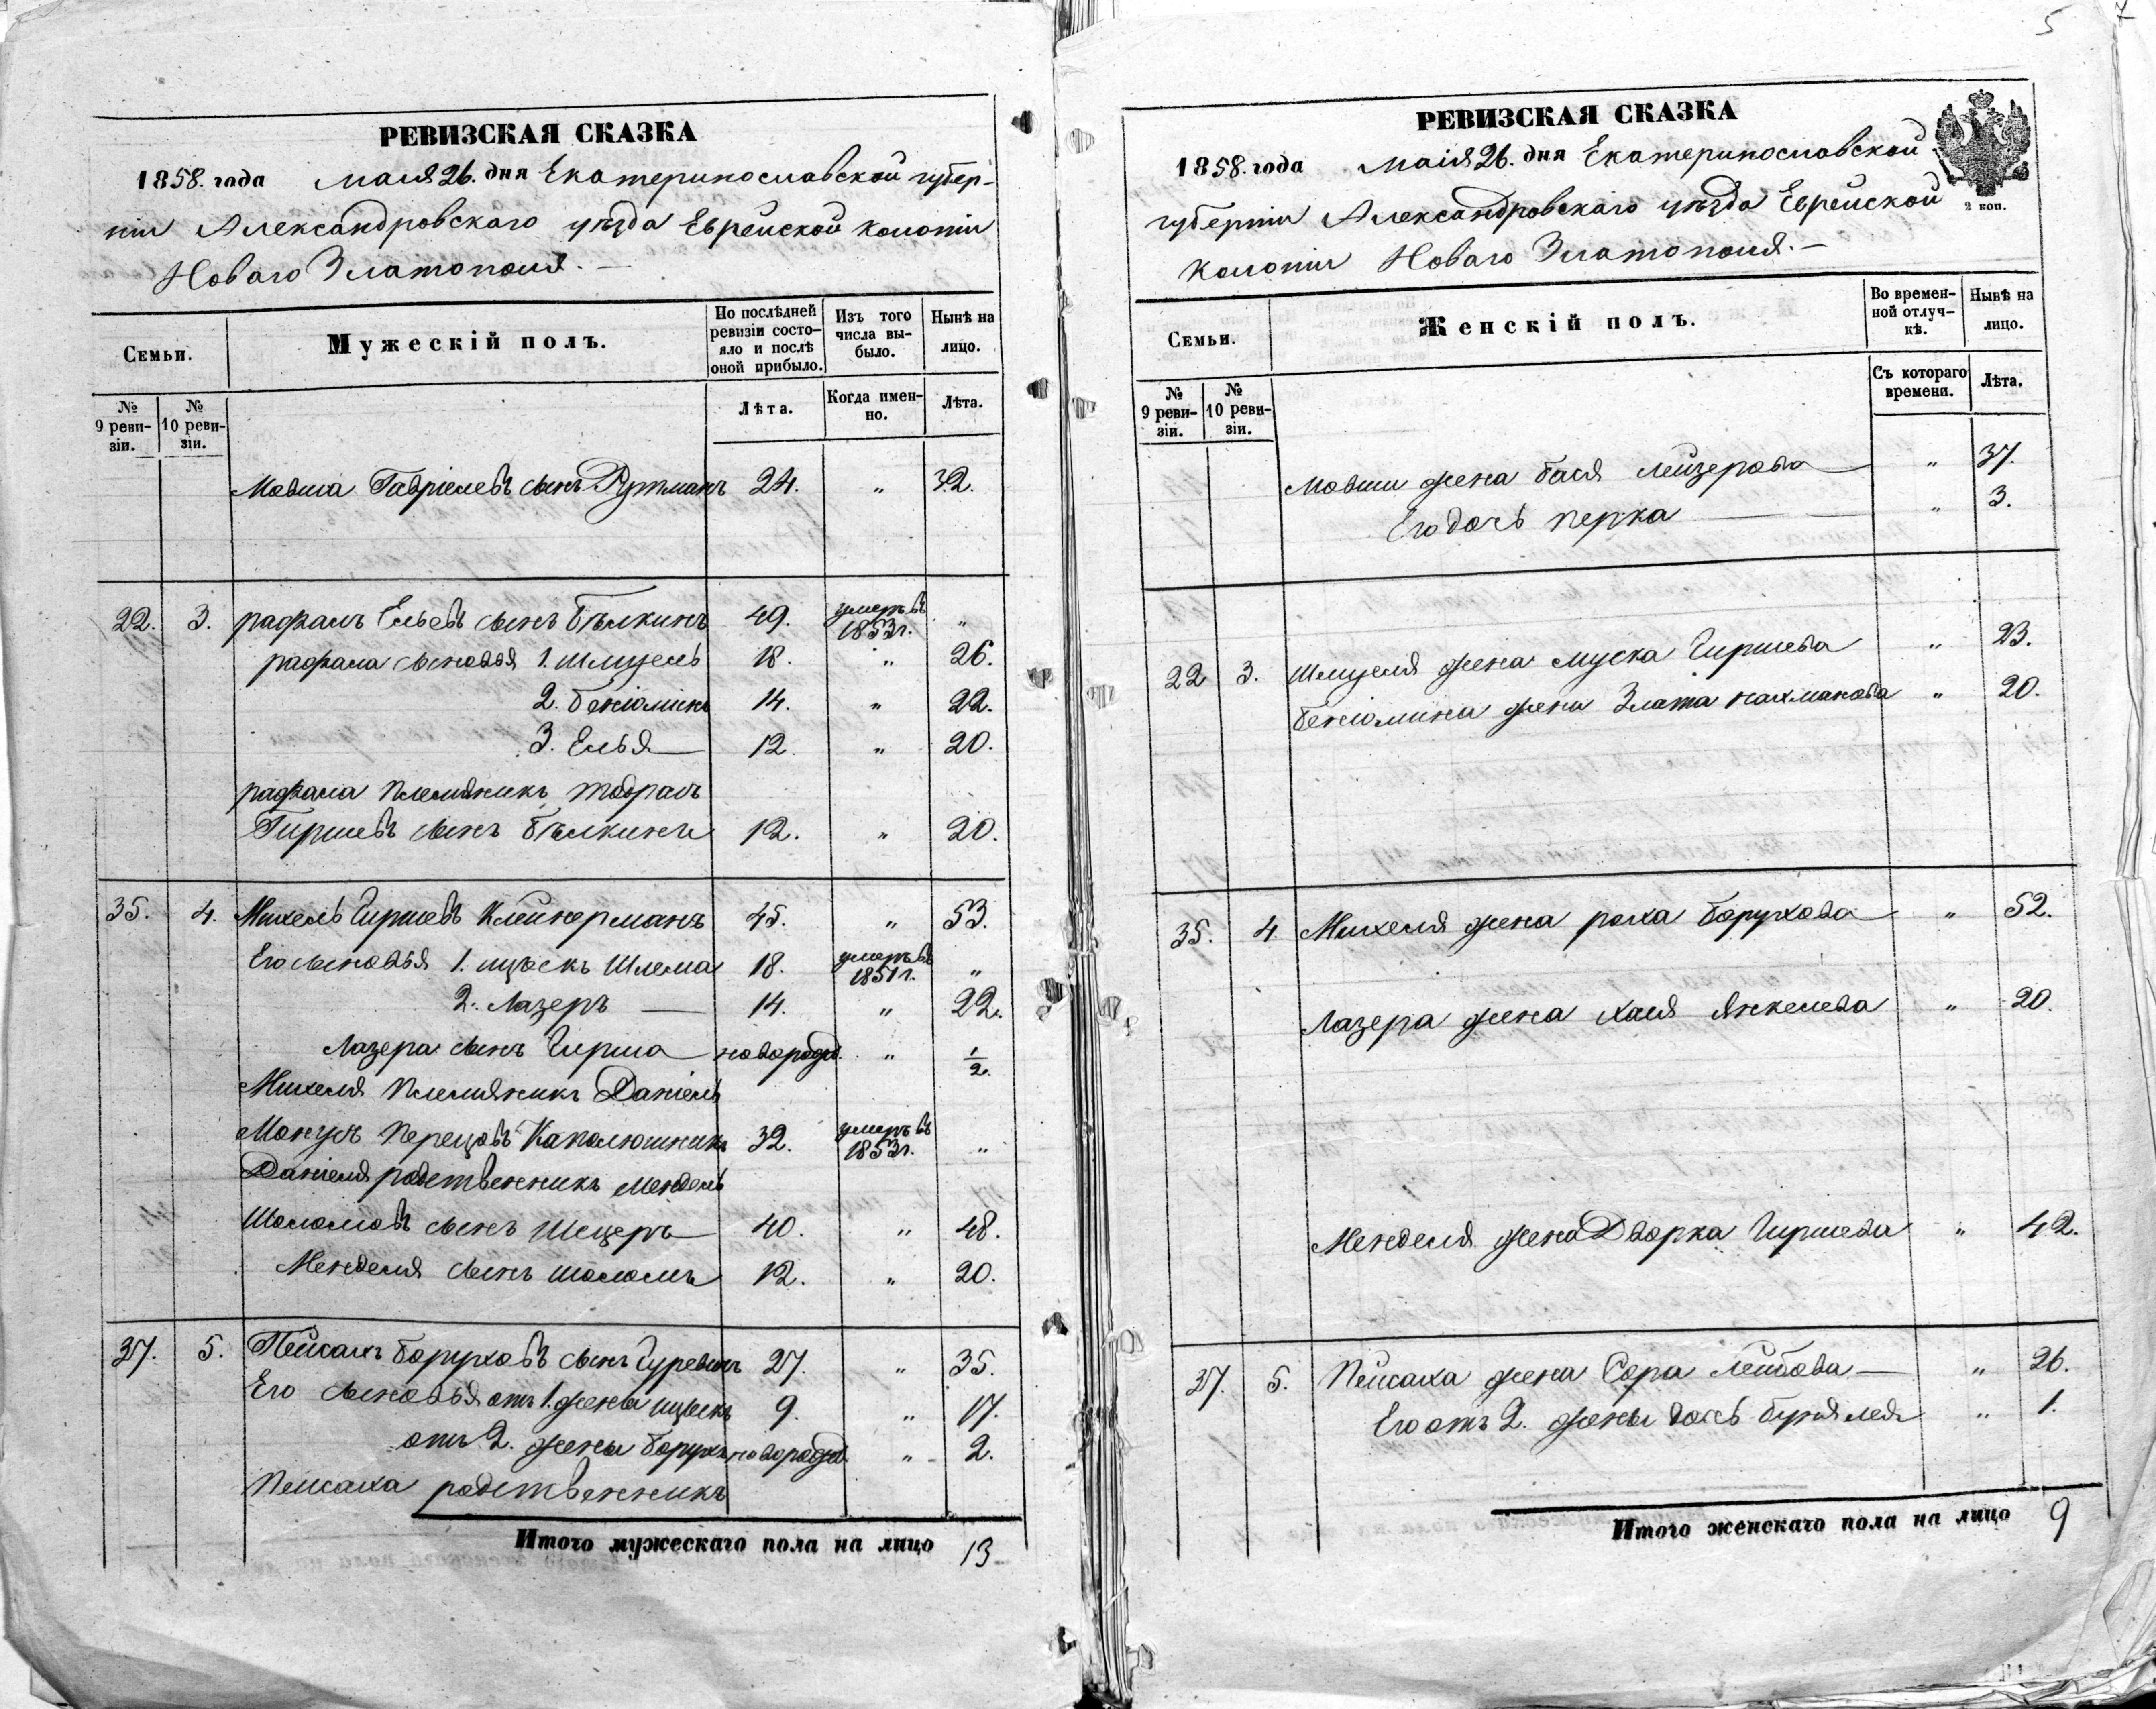 РЕВИЗСКАЯ СКАЗКА
1858. года Маія 26. дня Екатеринославской губер-
ніи Александровскаго уѣзда Еврейской колоніи
Новаго Златополя. —
Семьи.
Мужескій полъ.
По послѣдней ревизіи состо-
яло и послѣ оной прибыло.
Изъ того числа вы-
было.
Нынѣ на лицо.
№ 9 реви-
зіи.
№ 10 реви-
зіи.
Лѣта.
Когда имен-
но.
Лѣта.
Мовша Гавріелевъ сынъ Рутманъ 24. " 32.
22. 3. рафаилъ Ельевъ сынъ Бѣлкинъ 49. умеръ въ 1853 г. "
рафаила сыновья 1. Шмуель 18. " 26.
2. беніоминъ 14. " 22.
3. Елья 12. " 20.
рафаила племяникъ
Гиршевъ сынъ Бѣлкинъ 12. " 20.
35. 4. Михель Гиршевъ Клейнерманъ 45. " 53.
Его сыновья 1. ицъокъ Шлема 18. умеръ въ 1851 г. "
2. Лазеръ — 14. " 22.
Лазера сынъ Гирша новорожд. " 1/2.
Михеля племяникъ Даніель
Перецовъ Капелюшникъ 32. умеръ въ 1853 г. "
Даніеля родственникъ мендель
Шоломовъ сынъ 40. " 48.
Менделя сынъ шоломъ 12. " 20.
37. 5. Пейсахъ боруховъ сынъ Гуревичъ 27. " 35.
Его сыновья отъ 1. жены ицыкъ 9. " 17.
отъ 2. жены борухъ новорожд. " 2.
Пейсаха родственникъ
Итого мужескаго пола на лицо 13
5 7
РЕВИЗСКАЯ СКАЗКА
1858. года Маія 26. дня Екатеринославской
губерніи Александровскаго уѣзда Еврейской
2 коп.
колоніи Новаго Златополя. —
Семьи.
Женскій полъ.
Во времен-
ной отлуч-
кѣ.
Нынѣ на лицо.
№ 9 реви-
зіи.
№ 10 реви-
зіи.
Съ котораго времени.
Лѣта.
Мовши жена бася лейзерова — " 37.
Его дочь перка — " 3.
22 3. Шмуеля жена муска Гиршева " 23.
беніомина жена Злата нахманова " 20.
35. 4. Михеля жена роха борухова — " 52.
Лазера жена хая янкелева " 20.
Менделя жена Дворка Гиршева " 42.
37. 5. Пейсаха жена Сора лейбова — " 26.
Его отъ 2. жены дочь " 1.
Итого женскаго пола на лицо 9